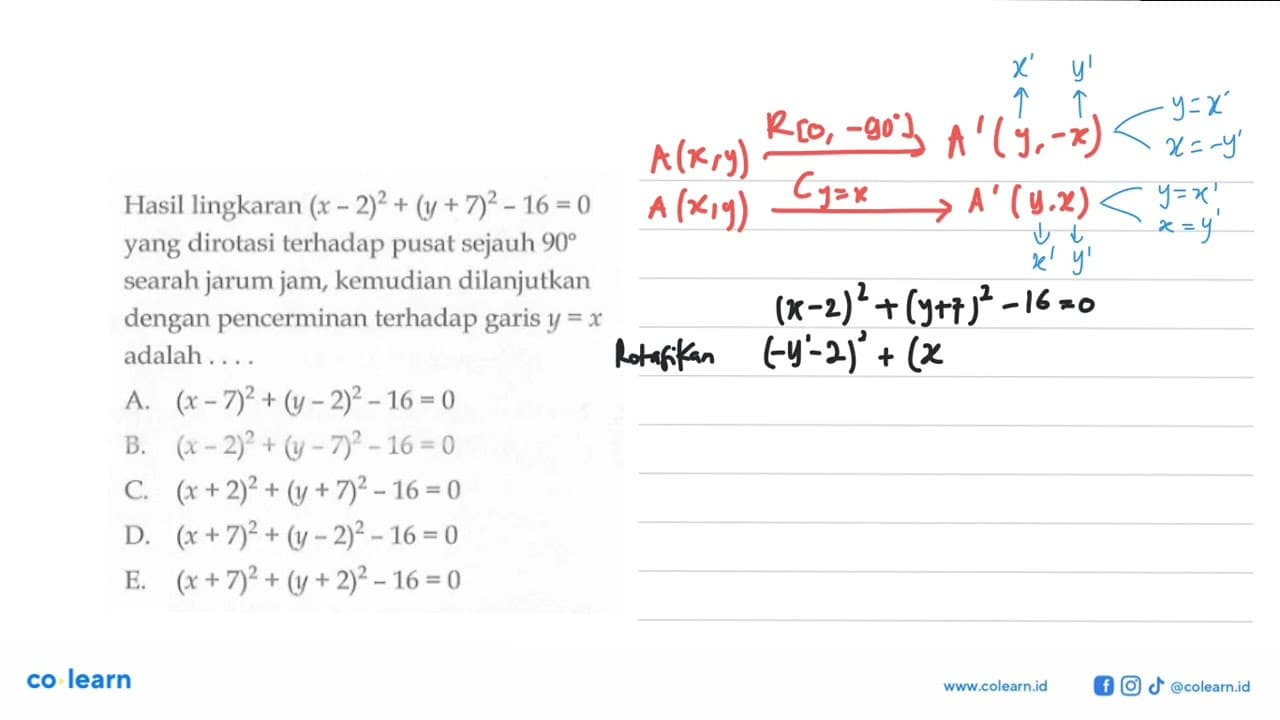 Hasil lingkaran (x – 2)² + (y + 7)² – 16 = 0
yang dirotasi terhadap pusat sejauh 90°
searah jarum jam, kemudian dilanjutkan
dengan pencerminan terhadap garis y = x
adalah . . . .
A. (x – 7)² + (y – 2)² – 16 = 0
B. (x – 2)² + (y – 7)² – 16 = 0
C. (x + 2)² + (y + 7)² – 16 = 0
D. (x + 7)² + (y – 2)² – 16 = 0
E. (x + 7)² + (y + 2)² – 16 = 0
x' y'
↑ ↑
A(x,y) R[0, -90°] → A'(y, -x) < y = x'
x = -y'
A(x,y) C y=x → A'(y.x) < y = x'
x = y'
↓ ↓
x' y'
(x-2)² + (y+7)² - 16 = 0
Rotasikan (-y'-2)² + (x
co·learn
www.colearn.id @colearn.id